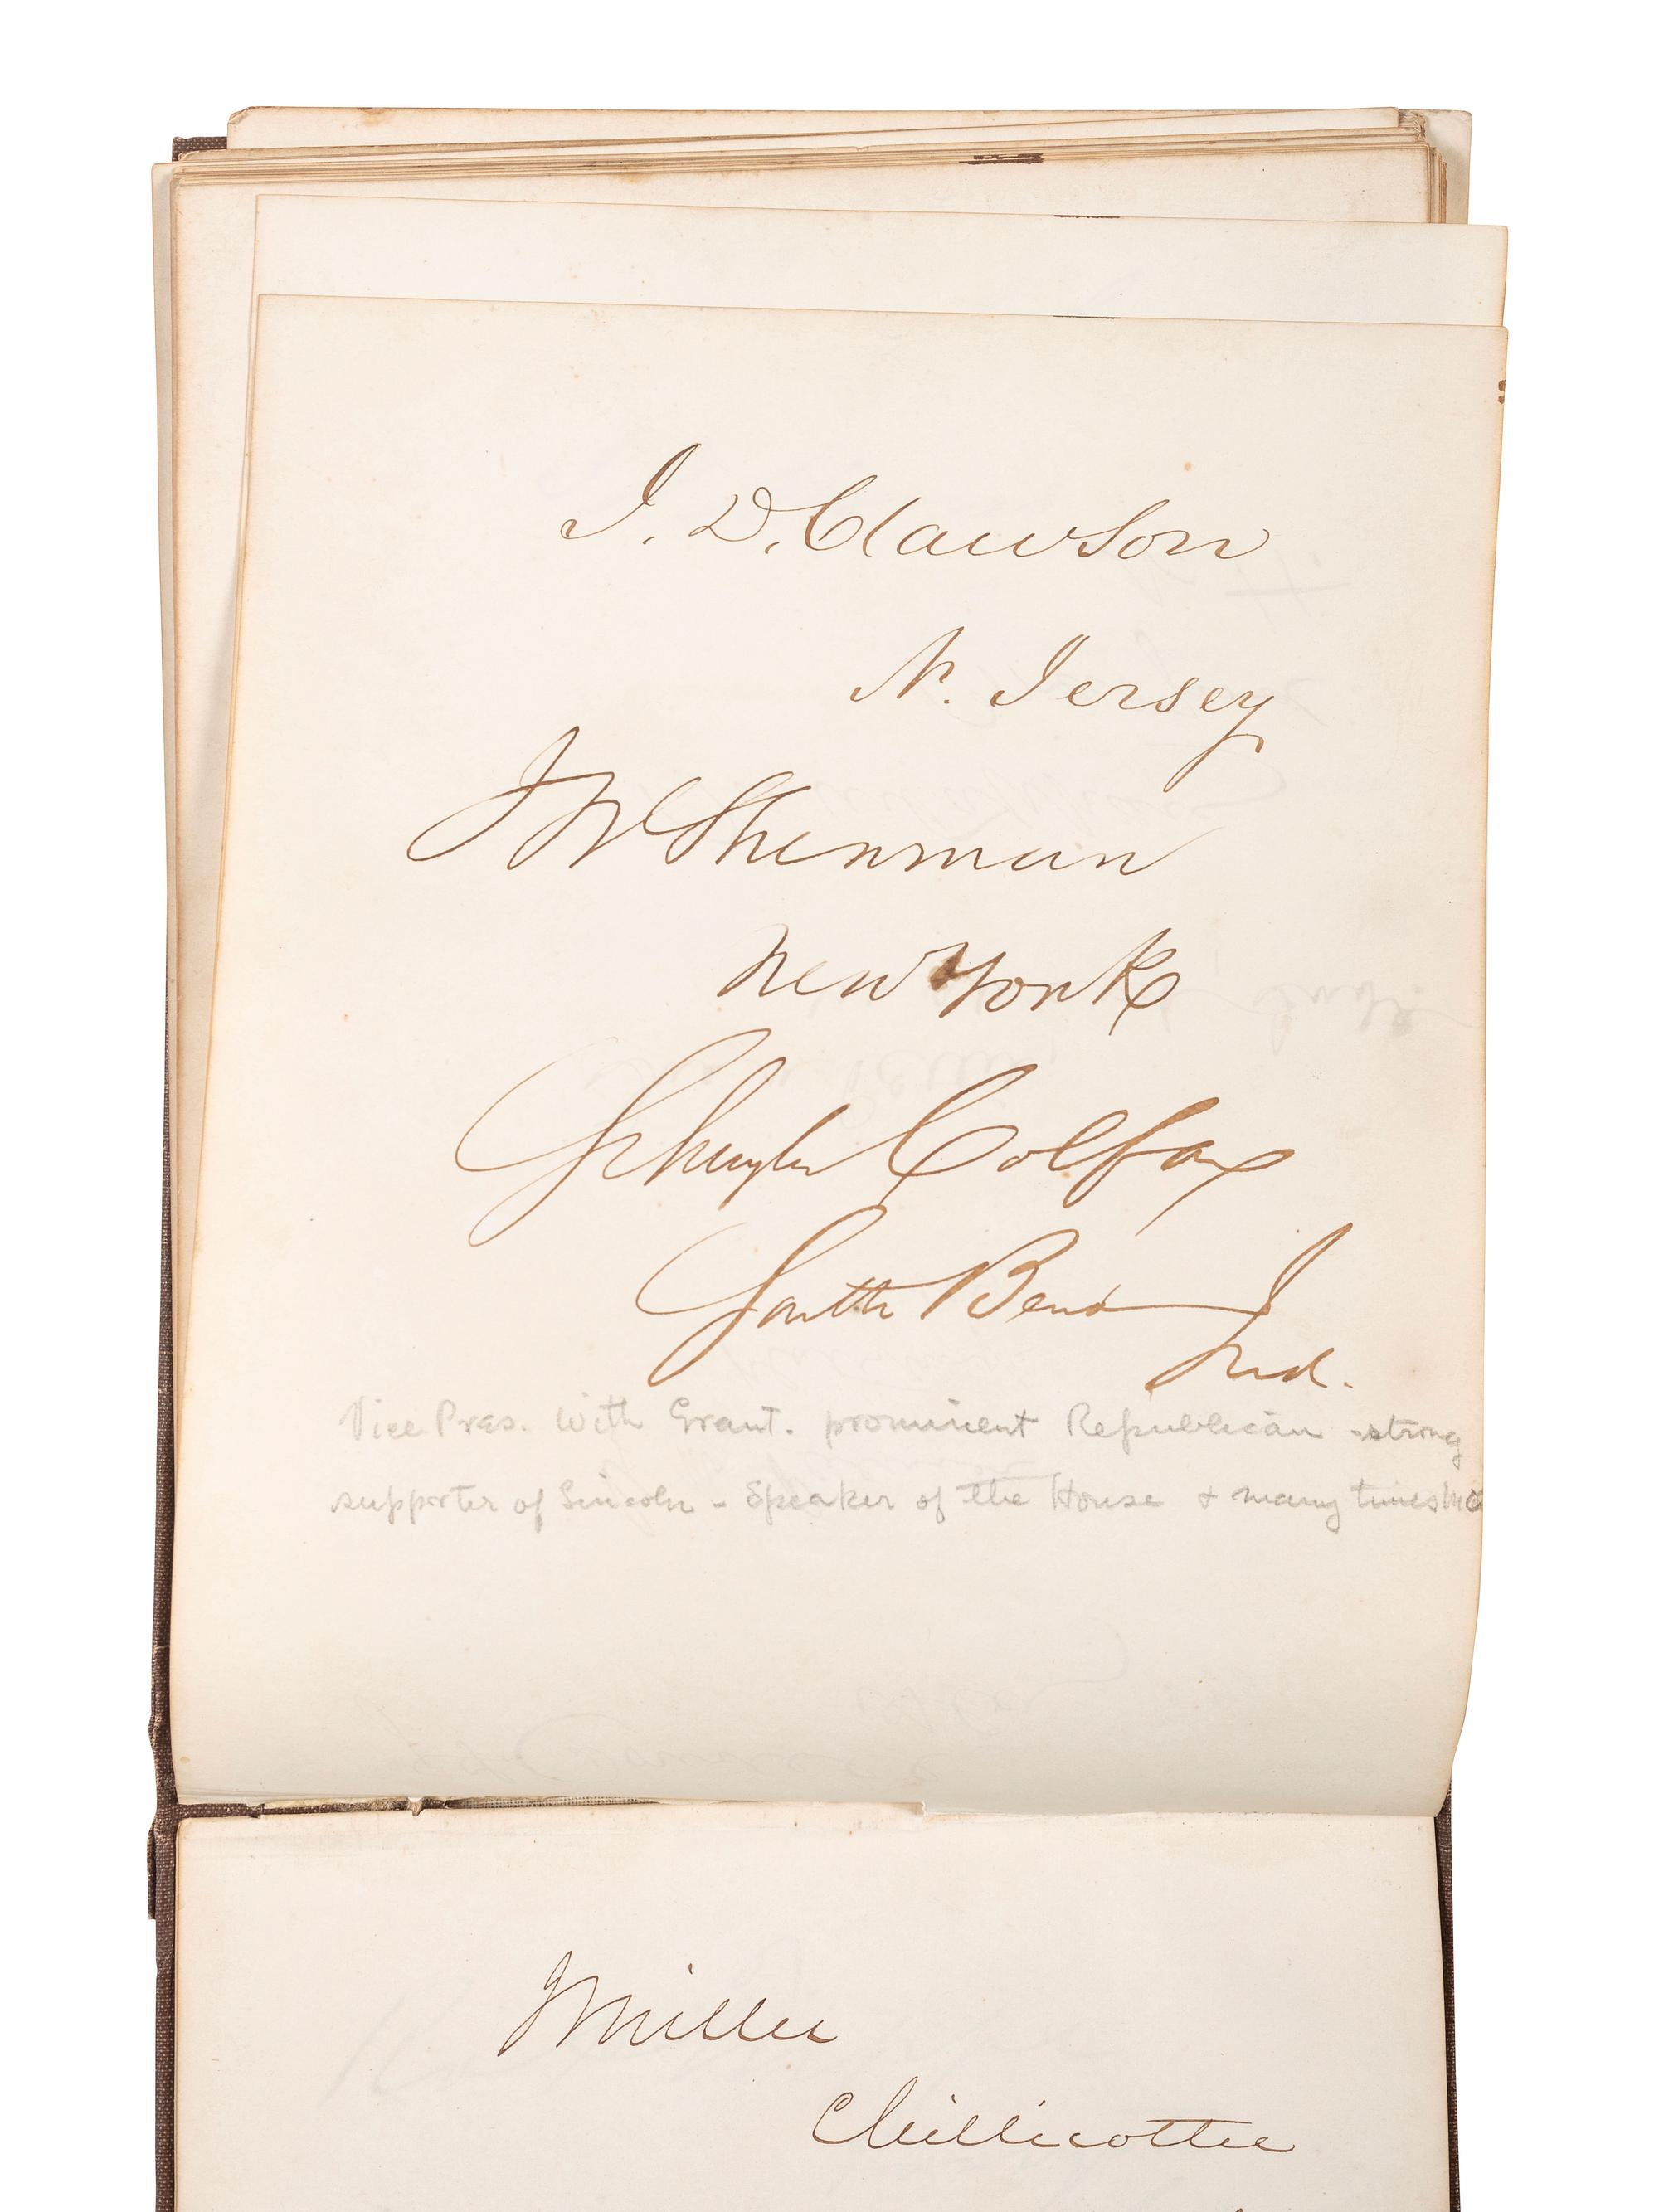 I. D. Clawson
N. Jersey
J W Shenman
New York
Schuyler Colfax
South Bend
Ind.
Vice Pres. with Grant. prominent Republican - strong
supporter of Lincoln - Speaker of the House & many times MC
Miller
Chillicothe